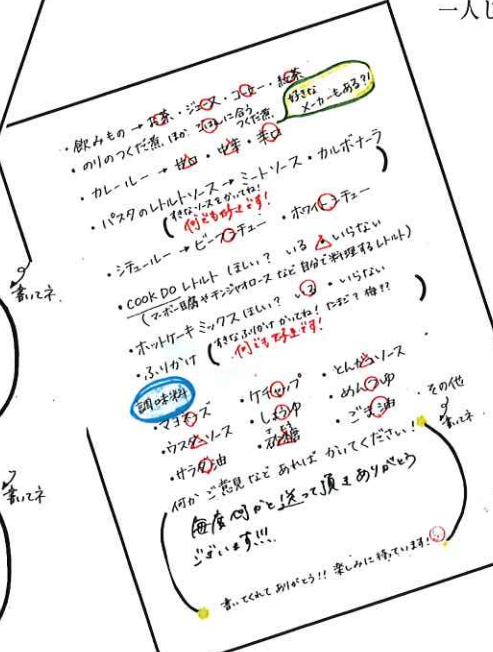 一人
・飲みもの → お茶・ジュース・コーヒー・紅茶
・のりのつくだ煮 ほか ごはんに合うつくだ煮
好きなメーカーもある?!
・カレールー → 甘口・中辛・辛口
・パスタのレトルトソース → ミートソース・カルボナーラ
(すきなソースをかいてね!
何でも好きです!)
・シチュールー → ビーフシチュー ・ホワイトシチュー
・COOK DO レトルト ほしい? いる いらない
(マーボー豆腐やチンジャオロース など 自分で料理するレトルト)
・ホットケーキミックスほしい? いる ・ いらない
・ふりかけ (すきなふりかけ かいてね! たまご? 梅??
何でも好きです!)
調味料
・マヨネーズ ・ケチャップ ・とんかつソース
・ウスターソース ・しょうゆ ・めんつゆ ・その他
・サラダ油 ・砂糖 ・ごま油
書いてネ
何か ご意見など あれば かいてください!
毎度何かと送って頂きありがとう
ございます!!!
書いてくれて ありがとう!! 楽しみに待っています!
書いてネ
書いてネ